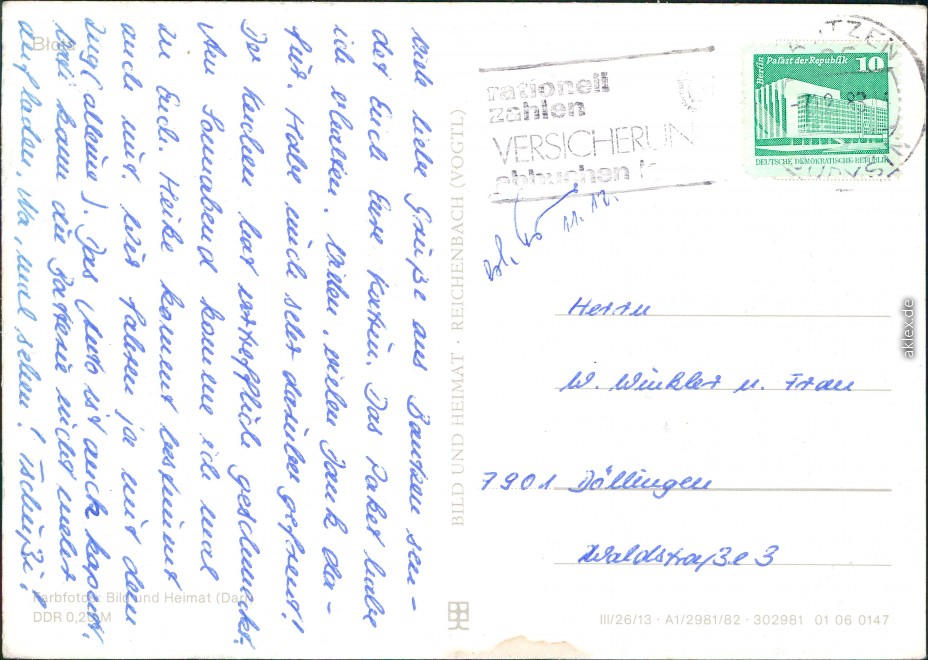 Viele liebe Grüße aus Bautzen sen-
det Euch Eure Katrin. Das Paket habe
ich erhalten. Vielen, vielen Dank da-
für. Habe mich sehr darüber gefreut!
Der Kuchen hat vortrefflich geschmeckt.
Am Sonnabend komme ich mal
zu Euch. Heike kommt bestimmt
auch mit. Wir fahren ja mit dem
Zug (alleine). Das Auto ist auch kaputt.
kann die Batterie nicht mehr
aufladen. Na, mal sehen! Tschüß!
Farbfoto: Bild und Heimat
DDR 0,20 M
BILD UND HEIMAT · REICHENBACH (VOGTL)
rationell
zahlen
VERSICHERUN
abbuchen
BAUTZEN
Berlin Palast der Republik 10
DEUTSCHE DEMOKRATISCHE REPUBLIK
11.12.
Herrn
W. Winkler u. Frau
7901 Döllingen
Waldstraße 3
III/26/13 · A1/2981/82 · 302981 01 06 0147
aklex.de